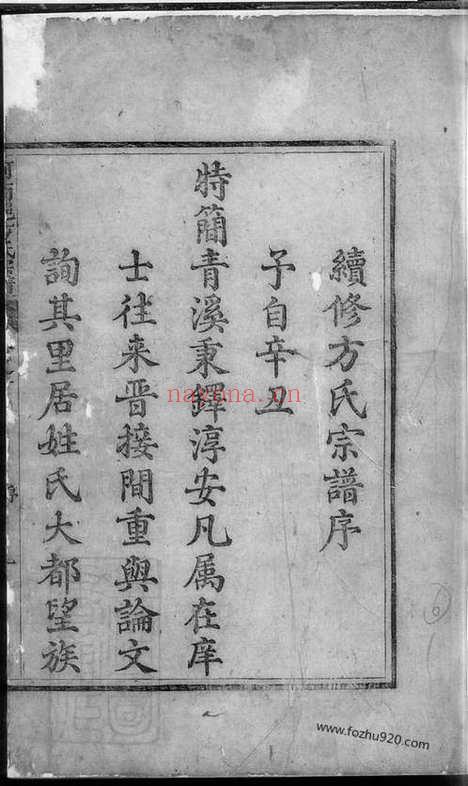 續修方氏宗譜序
予自辛丑
特簡青溪秉鐸淳安凡属在庠
士徃来晋接間重與論文
詢其里居姓氏大都望族
nayona.cn
6
www.fozhu920.com